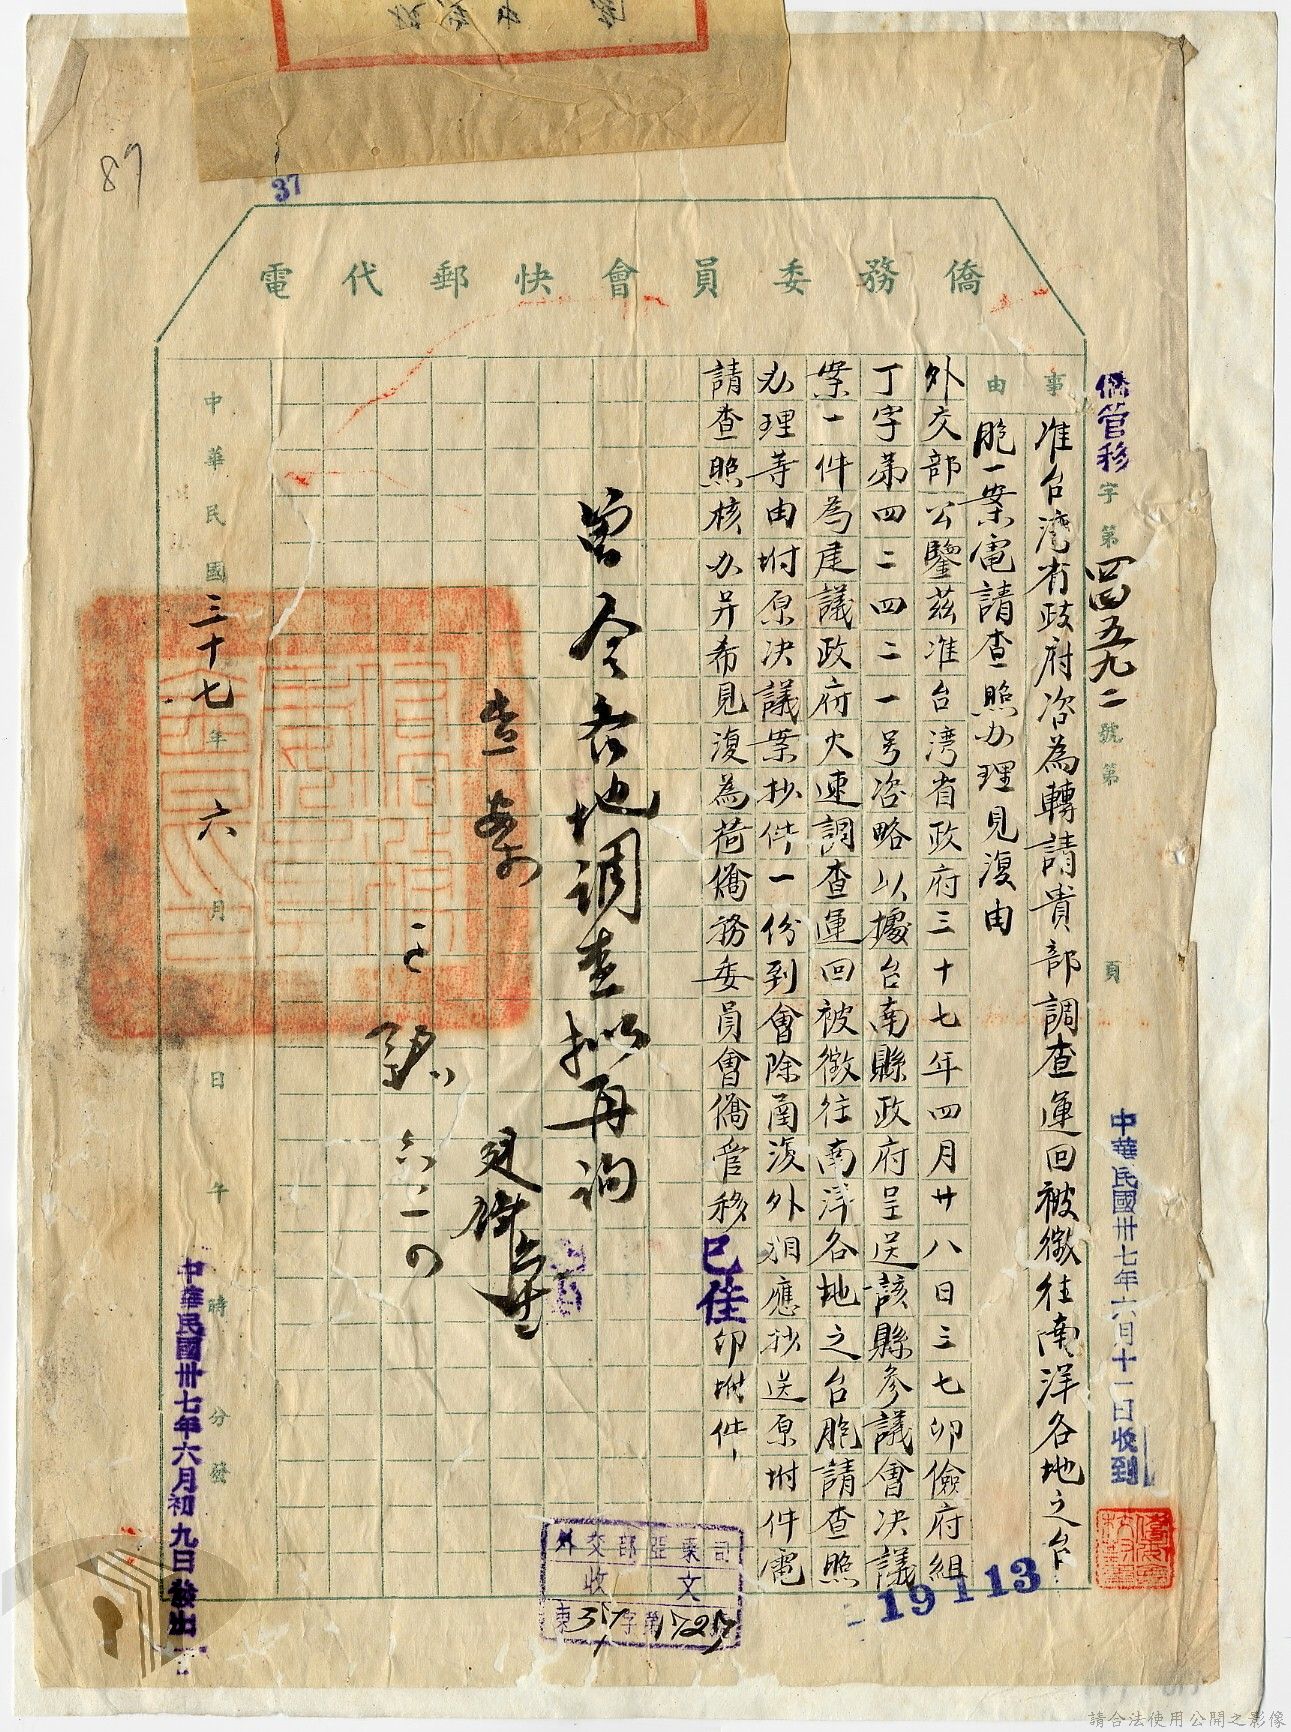 87
37
僑務委員會快郵代電
僑管移字第四四五九二號第 頁
中華民國卅七年六月十一日收到
事由
准台湾省政府咨為轉請貴部調查運回被徵往南洋各地之台
胞一案電請查照办理見復由
外交部公鑒茲准台湾省政府三十七年四月廿八日三七卯儉府組
丁字第四二四二一号咨略以據台南縣政府呈送該縣参議會决議
案一件為建議政府火速調查運回被徵往南洋各地之台胞請查照
办理等由附原决議案抄件一份到會除函復外相應抄送原附件電
請查照核办并希見復為荷僑務委員會僑管移巳佳印附件
曾令各地調查拟再詢
查案
六一四
中華民國三十七年六月 日 午 時 分發
中華民國卅七年六月初九日發出
外交部亞東司
收文
東37字第1727號
19113
請合法使用公開之影像